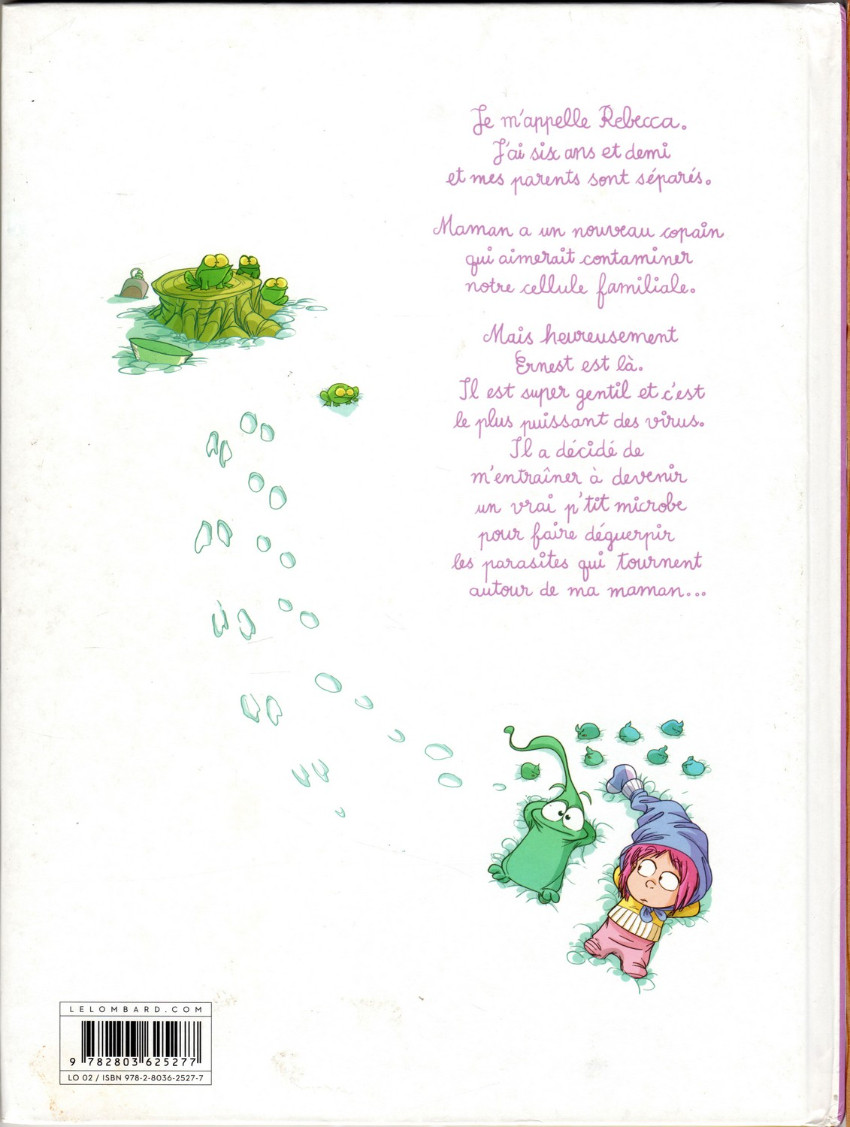 Je m'appelle Rebecca.
J'ai six ans et demi
et mes parents sont séparés.
Maman a un nouveau copain
qui aimerait contaminer
notre cellule familiale.
Mais heureusement
Ernest est là.
Il est super gentil et c'est
le plus puissant des virus.
Il a décidé de
m'entraîner à devenir
un vrai p'tit microbe
pour faire déguerpir
les parasites qui tournent
autour de ma maman...
LELOMBARD.COM
9 782803 625277
LO 02 / ISBN 978-2-8036-2527-7